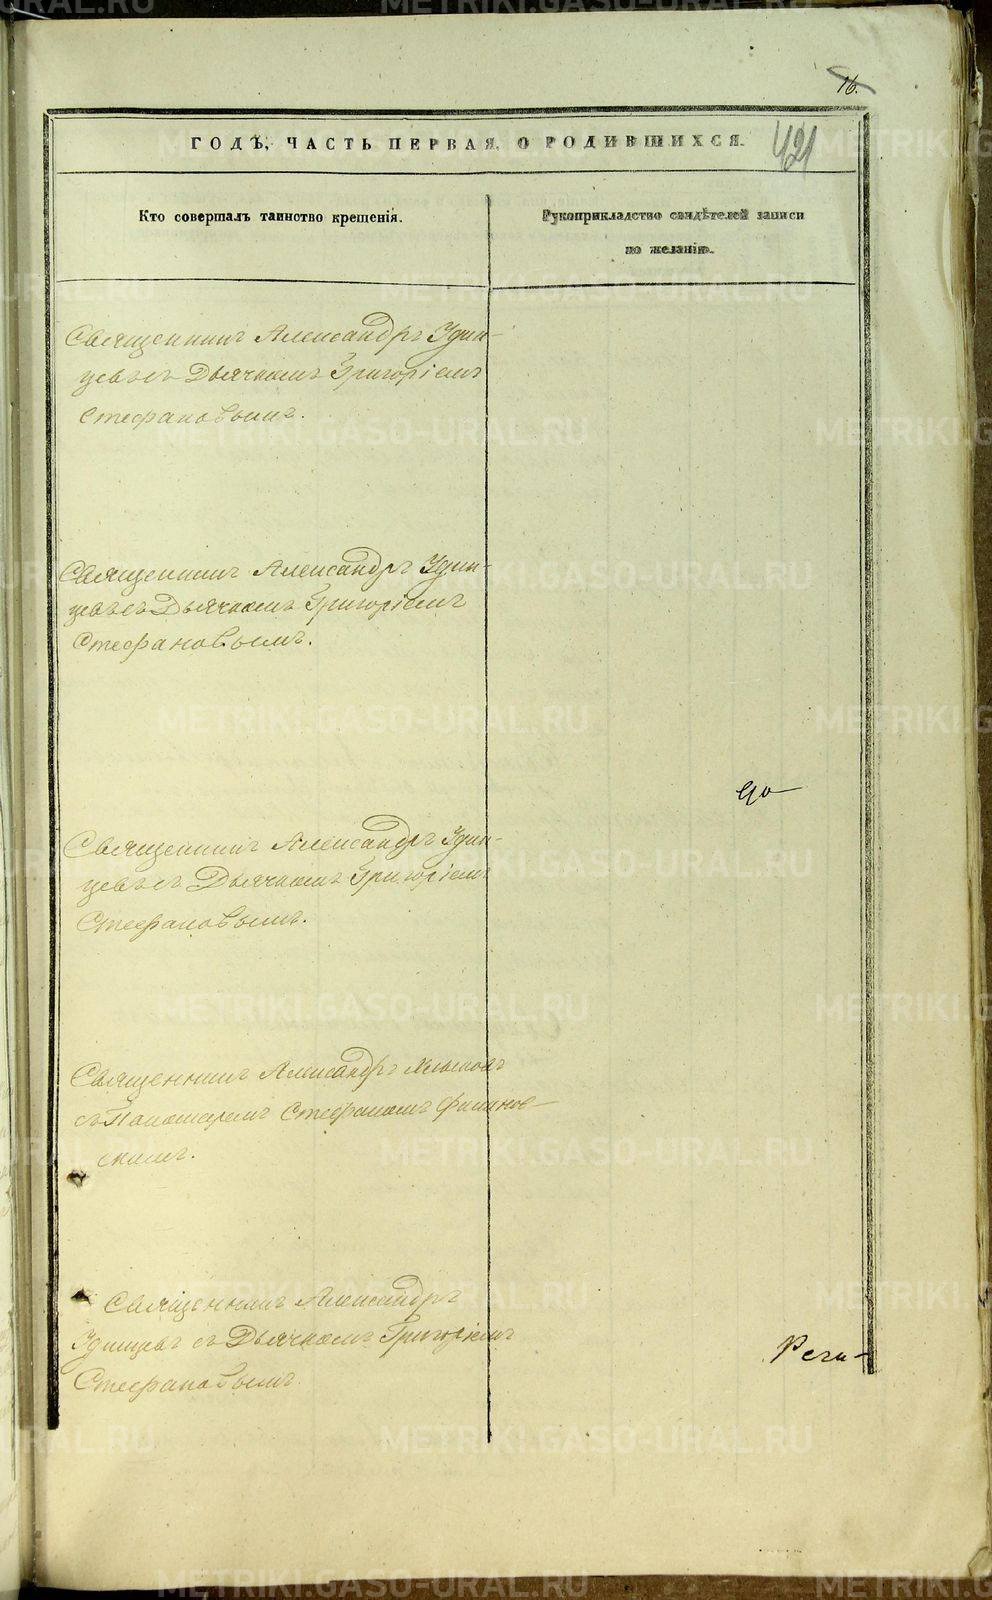 16.
421
ГОДЪ, ЧАСТЬ ПЕРВАЯ, О РОДИВШИХСЯ.
Кто совершалъ таинство крещенія.
Рукоприкладство свидѣтелей записи
по желанію.
Священникъ Александръ Удин-
цевъ съ Дьячкомъ Григоріемъ
Стефановымъ.
Священникъ Александръ Удин-
цевъ съ Дьячкомъ Григоріемъ
Стефановымъ.
Священникъ Александръ Удин-
цевъ съ Дьячкомъ Григоріемъ
Стефановымъ.
Священникъ Александръ
съ Пономаремъ Стефаномъ
скимъ.
Священникъ Александръ
Удинцевъ съ Дьячкомъ Григоріемъ
Стефановымъ.
METRIKI.GASO-URAL.RU